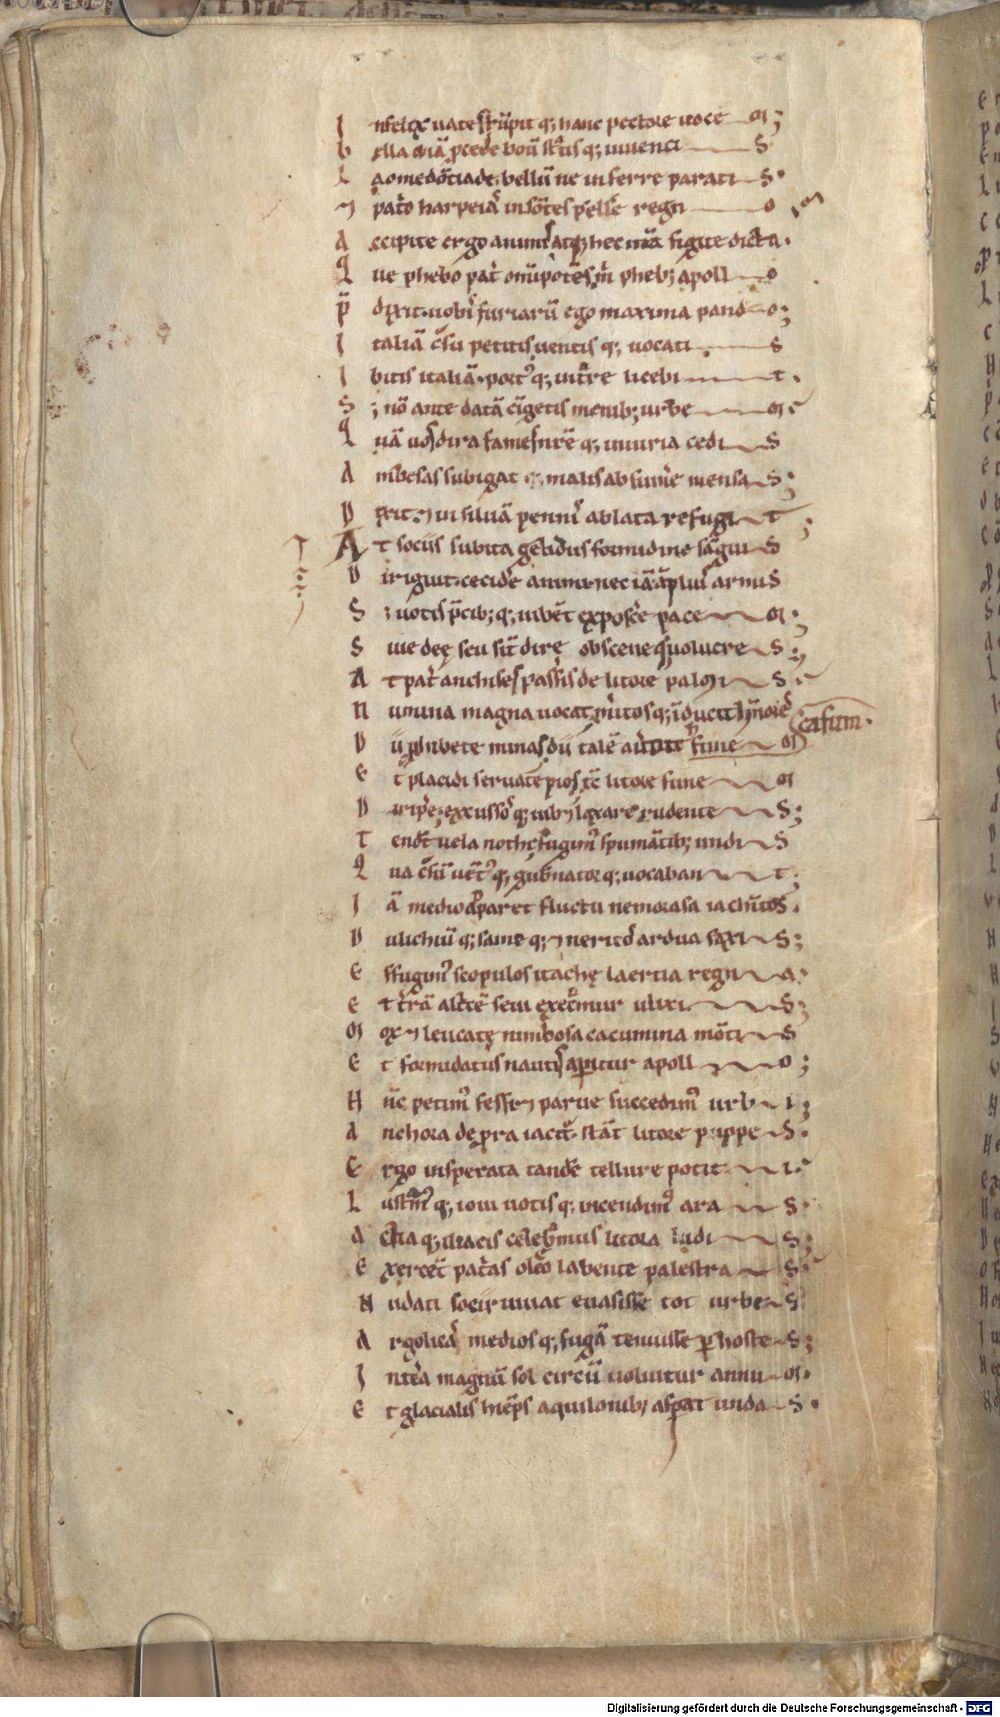 I nfelix uates rūpit q; hanc pectore uoce m;
b ella etiā p cede boū st̄tis q; iuuenci S
L aomedōtiade; bellū ne inferre parati S.
⁊ pat̓o harpeias̓ insōtes pelle̓ regn o
A ccipite ergo animis atq; hec m̄a figite dicta.
Q ue phebo pat̓ om̄ipotēs m̓ pheb; apoll o
p̄ dixit. uobis̓ furiarū ego maxima pand o;
I taliā c̓su petitis uentis q; uocati. S
I bitis italiā. port᷒ q; int̓re licebi t.
S ; nō ante datā cīgetis menib; urbe m;
Q uā uos dira fames nr̄e q; iniuria cedi S
A mbesas subigat q; malis absume̓ mensa S;
D ixit. ⁊ in siluā pennis̓ ablata refugi t;
A t sociis subita gelidus formidine sāgui S
D iriguit. cecide̓ animi. nec iā āpli᷒ armis
S ; uotis p̄cib; q; iubēt expos̓ce pace m;
S iue deę seu sīt dirę obscene q; uolucre S;
A t pat̓ anchises passis̓ de litore palmi S.
N umina magna uocat. m̓itos q; īducit hōnore̓
D ii phibete minas dii talē au̓tite casum.
E t placidi seruate pios. tc̄ litore fune m
D iripe̓; excussos̓ q; iub; laxare rudente S;
T endt̄ uela nothi; fugim᷒ spumātib; undi S
Q ua c̓sū uēt᷒ q; gub̓nator q; uocaban t;
I ā medio apparet fluctu nemorosa iachintos.
D ulichiū q; same q; ⁊ neritos̓ ardua saxi S;
E ffugim᷒ scopulos itachę laertia regn a.
E t t̓rā alt̓cē seui exec̓mur ulixi. S;
M ox ⁊ leucatę nimbosa cacumina mōti S
E t formidatus nautis aperitur apoll o;
H ūc petim᷒ fessi ⁊ parue succedim᷒ urb i;
A nchora de pra iacit̓. stāt litore puppe S.
E rgo insperata tande̓ tellure potit i.
L ustm᷒ q; ioui uotis q; incendim᷒ ara S.
A ctia q; iliacis celeb̓mus litora ludi S;
E xercēt pat̓as oleo labente palestra S.
N udati socii iuuat euasisse tot urbe S
A rgolicas̓ medios q; fugā tenuisse p hoste S;
I nt̓ea magnū sol circū uoluitur annu m.
E t glacialis hiēps aquilonib; aspat unda S.
Digitalisierung gefördert durch die Deutsche Forschungsgemeinschaft - DFG